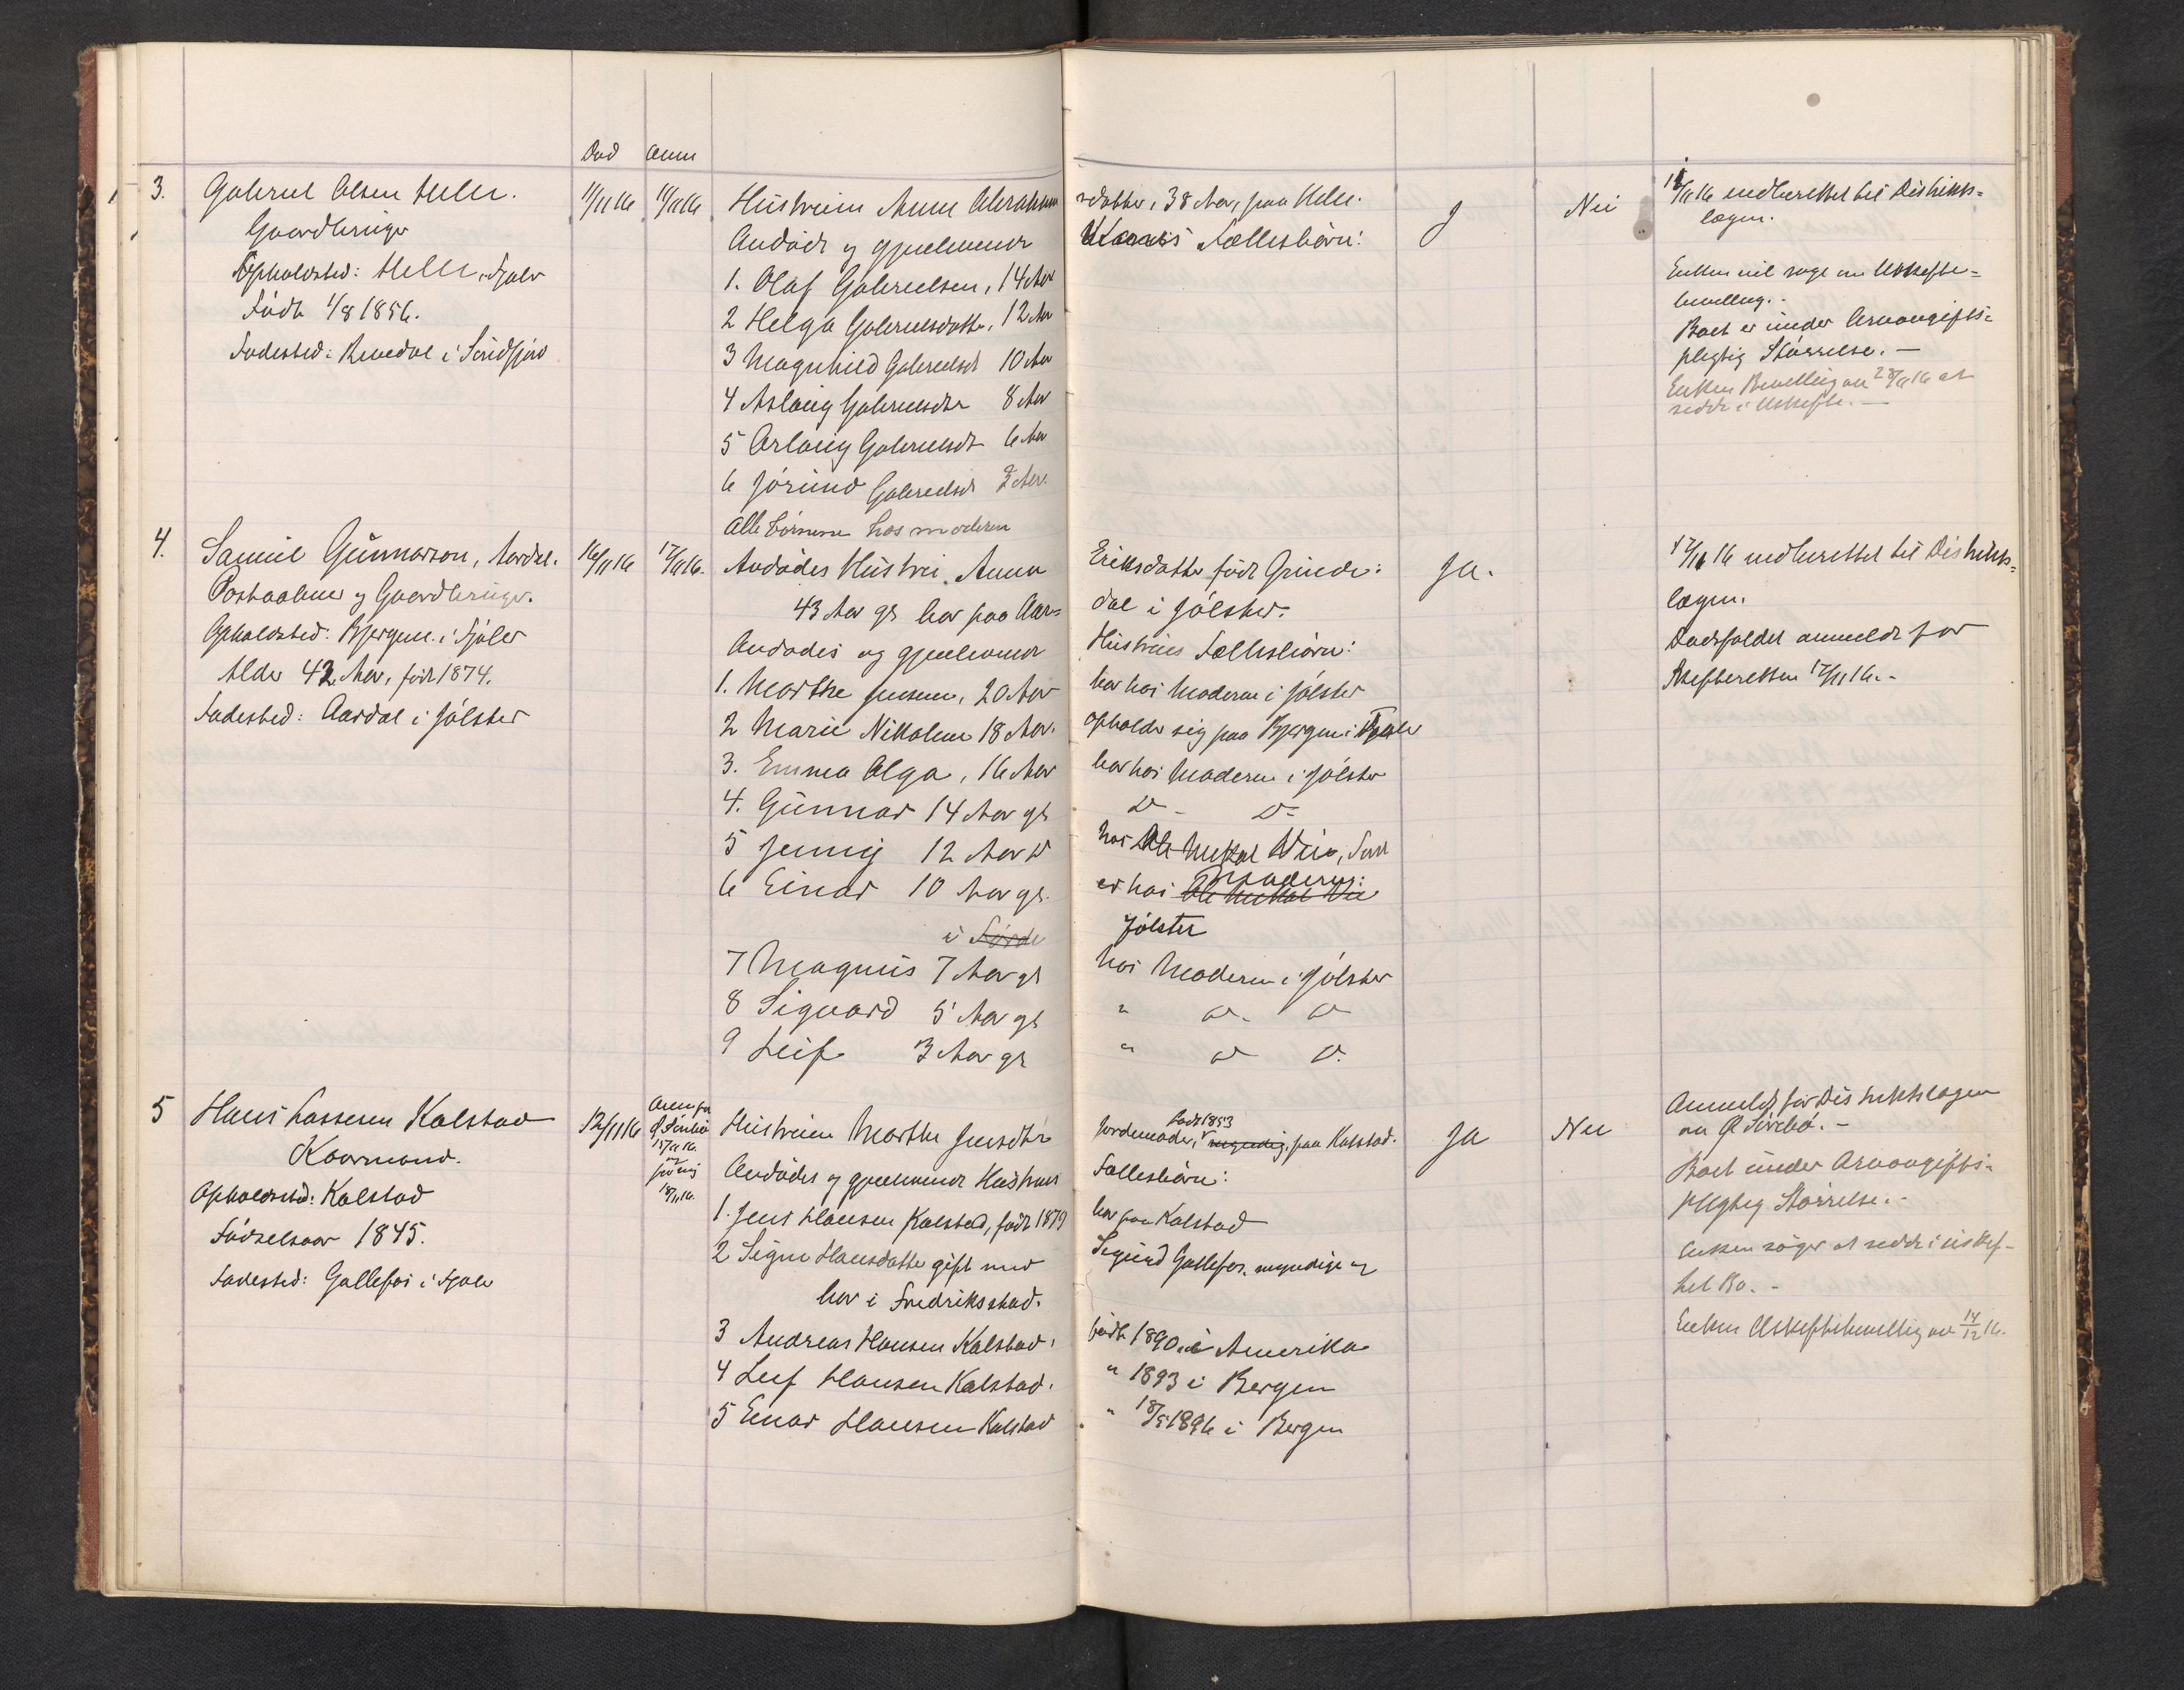 Død Anm
3. Gabriel Olsen Helle. 11/11 16 11/11 16 Hustruen Anne Abraham sdatter, 38 Aar, paa Helle. J Nei 11/11 16 indberettet til Distrikts=
Gaardbruger lægen.
Opholdsted: Helle, Fjaler Avdøde og gjenlevende Fællesbørn:
Født 1/8 1856. 1. Olaf Gabrielsen, 14 Aar Enken vil søge om Uskiftebe=
villing.
2 Helga Gabrielsdatter, 12 Aar Boet er under Arveavgifts=
Fødested: i Søndfjord 3 Magnhild Gabrielsdt 10 Aar pligtig Størrelse. —
4 Aslaug Gabrielsdtr 8 Aar Enken Bevilling av 28/11 16 at
sidde i Uskifte. —
5 Gabrielsdt 6 Aar
6 Jorund Gabrielsdt 2 Aar.
Alle børnene hos moderen
4. Samuel Gunnarson, Aardal. 16/11 16 17/11 16. Avdødes Hustru Anna Eriksdatter født Grinde: Ja. 17/11 16 indberettet til Distrikts=
og Gaardbruger. 43 Aar gl bor paa Aar= dal i Jølster. lægen.
Opholdsted: Bjergene i Fjaler Avdødes og gjenlevende Hustrues Fællesbørn: Dødsfaldet anmeldt for
Alder 42 Aar, født 1874. 1. Marthe Jensine, 20 Aar bor hos Moderen i Jølster Skifteretten 17/11 16. -
Fødested: Aardal i Jølster 2 Marie Nikoline 18 Aar. opholder sig paa Bjergene i Fjaler
3. Emma Olga, 16 Aar bor hos Moderen i Jølster
4. Gunnar 14 Aar gl D - D -
5 Jenny 12 Aar D hos Ole
6 Einar 10 Aar gl. er hos Moderen:
i Førde Jølster
7 Magnus 7 Aar gl hos Moderen i Jølster
8 Sigvard 5 Aar gl " D - D
9 Leif 3 Aar gl " D D.
5 Hans Lassesen Kalstad 12/11 16 Anm for Hustruen Marthe Jensdtr født 1853 Ja Nei Anmeldt for Distriktslægen
15/11 16. Jordemoder, myndig, paa Kalstad. av
Kaarmand. og for mig Avdødes og gjenlevende Hustrues Fællesbørn: Boet under Arveavgifts=
Opholdsted: Kalstad 18/11 16. 1. Jens Hansen Kalstad, født 1879 bor paa Kalstad pligtig Størrelse. -
Fødselsaar 1845. 2 Signe Hansdatter gift med Sigurd Gallefos, myndige og Enken søger at sidde i uskif-
Fødested: Gallefos i Fjaler bor i Fredriksstad. tet Bo. -
3 Andreas Hansen Kalstad. født 1890 i Amerika Enken Uskiftebevilling av 14/12 16.
4 Leif Hansen Kalstad. " 1893 i Bergen
5 Einar Hansen Kalstad " 18/5 1896 i Bergen